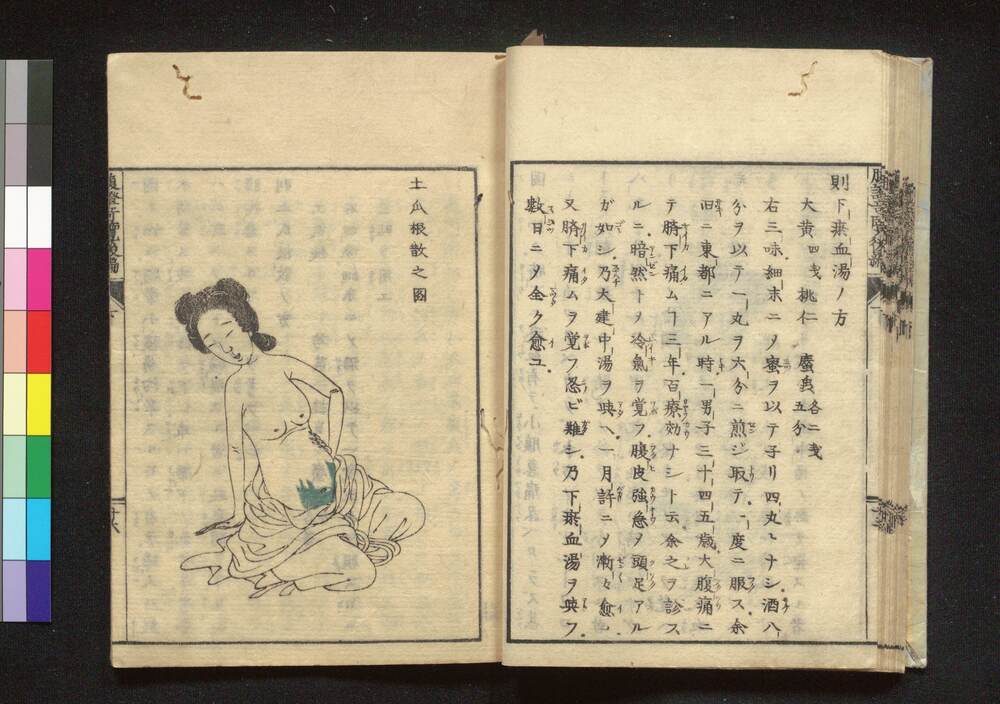 則下瘀血湯ノ方
大黄四戔 桃仁 䗪虫各二戔五分
右三味細末ニメ蜜ヲ以テ子リ四丸トナシ酒八
分ヲ以テ一丸ヲ六分ニ煎ジ取テ一度ニ服ス余
旧ニ東都ニアル時一男子三十四五歳大腹痛ニ
テ臍下痛ムヿ三年百療効ナシト云余之ヲ診ス
ルニ暗然トメ冷氣ヲ覚フ腹皮強急メ頭足アル
ガ如シ乃大建中湯ヲ與ヘ一月許ニメ漸々愈
又臍下痛ムヲ覚フ忍ビ難シ乃下瘀血湯ヲ與フ
數日ニメ全ク愈ユ
土瓜根散之図